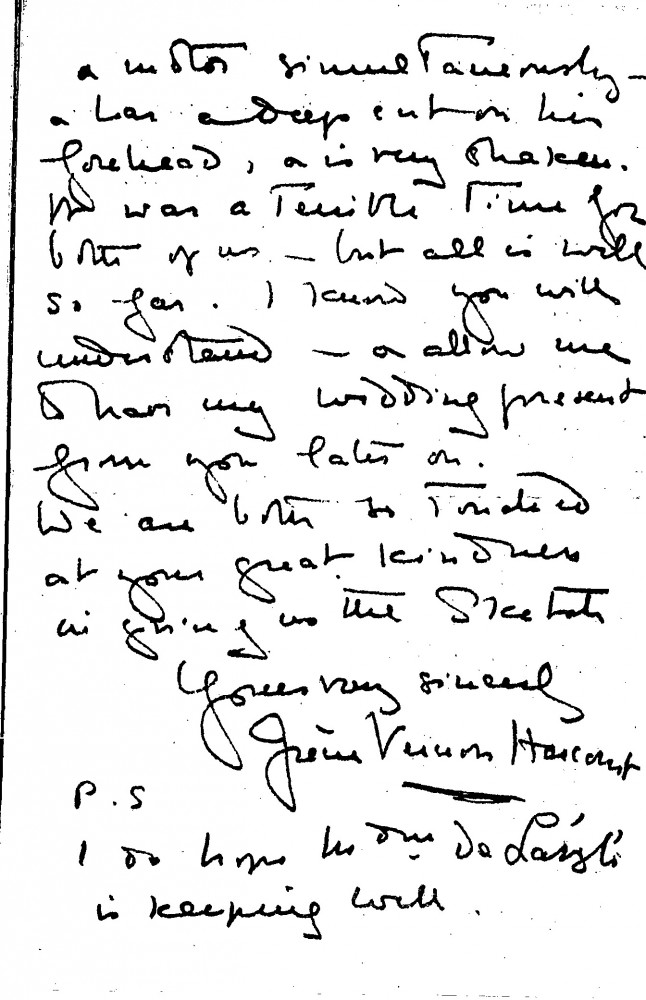 a motor simultaneously –
a has a deep cut on his
forehead, a is very shaken.
It was a Terrible Time for
both of us – but all is well
so far. I know you will
understand – a allow me
to have my wedding present
from you later on.
We are both so Touched
at your great kindness
in giving us the Sketch
Yours very sincerely
Irène Vernon Harcourt
P.S
I do hope De László
is keeping well.